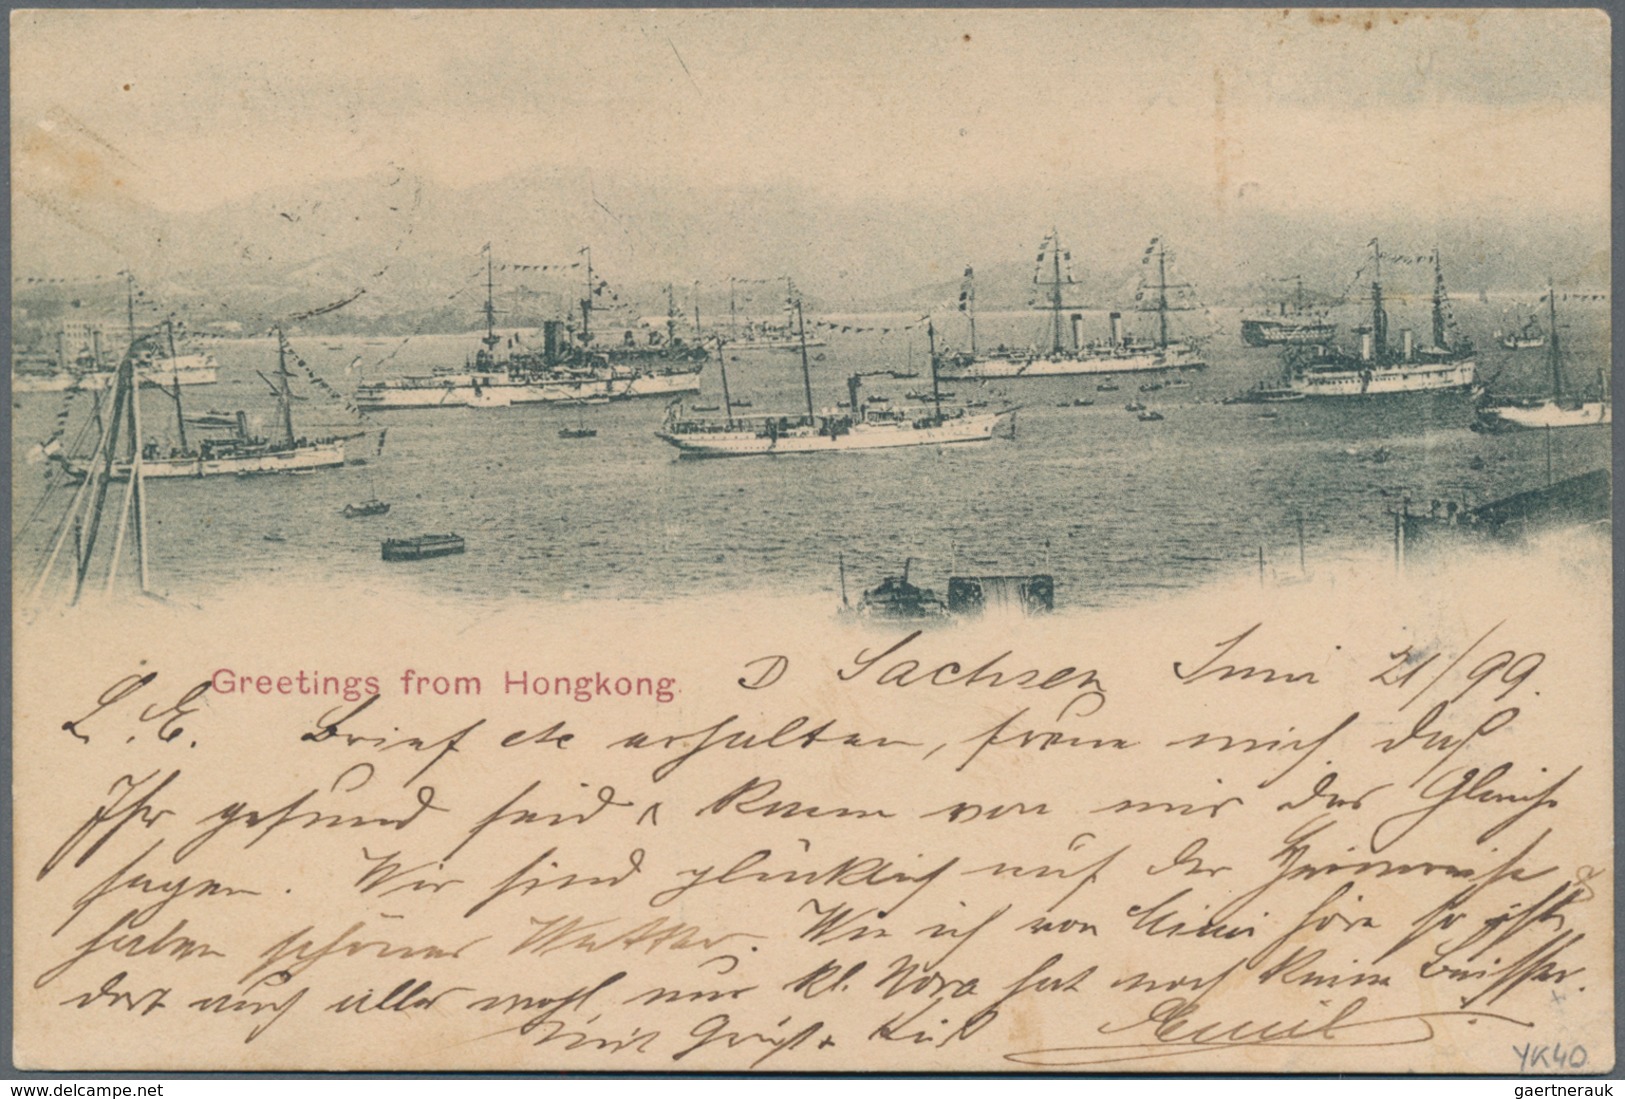 Greetings from Hongkong.
D Sachsen Juni 21/99.
L. E. Brief etc erhalten, freue mich daß
Ihr gesund seid & kann von mir das Gleiche
sagen. Wir sind glücklich auf der Heimreise &
haben schönes Wetter. Wie ich von Mimi höre so ist
dort auch alles wohl, nur kl. Nora hat noch keine
Mit Gruß & Kuß Emil
YK40
gaertnerauk